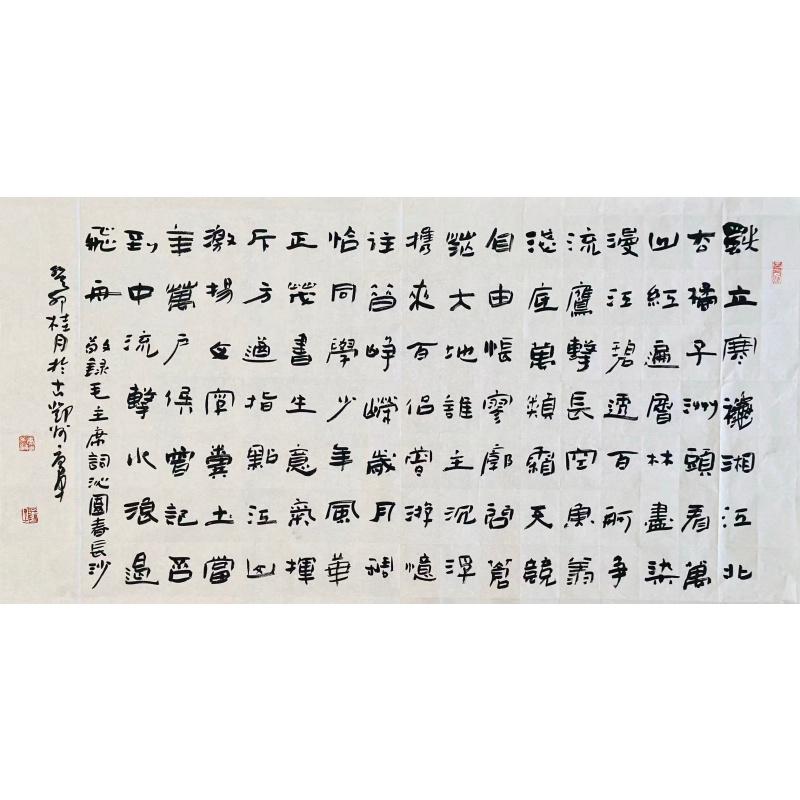 獨立寒龝湘江北
去橘子洲頭看萬
山紅遍層林盡染
漫江碧透百舸爭
流鷹擊長空魚翔
淺底萬類霜天競
自由悵寥廓問蒼
茫大地誰主沉浮
攜來百侶曾游憶
往昔崢嶸歲月稠
恰同學少年風華
正茂書生意氣揮
斥方遒指點江山
激揚文字糞土當
年萬户侯曾記否
到中流擊水浪遏
飛舟 敬録毛主席詞沁園春長沙
癸卯桂月於古